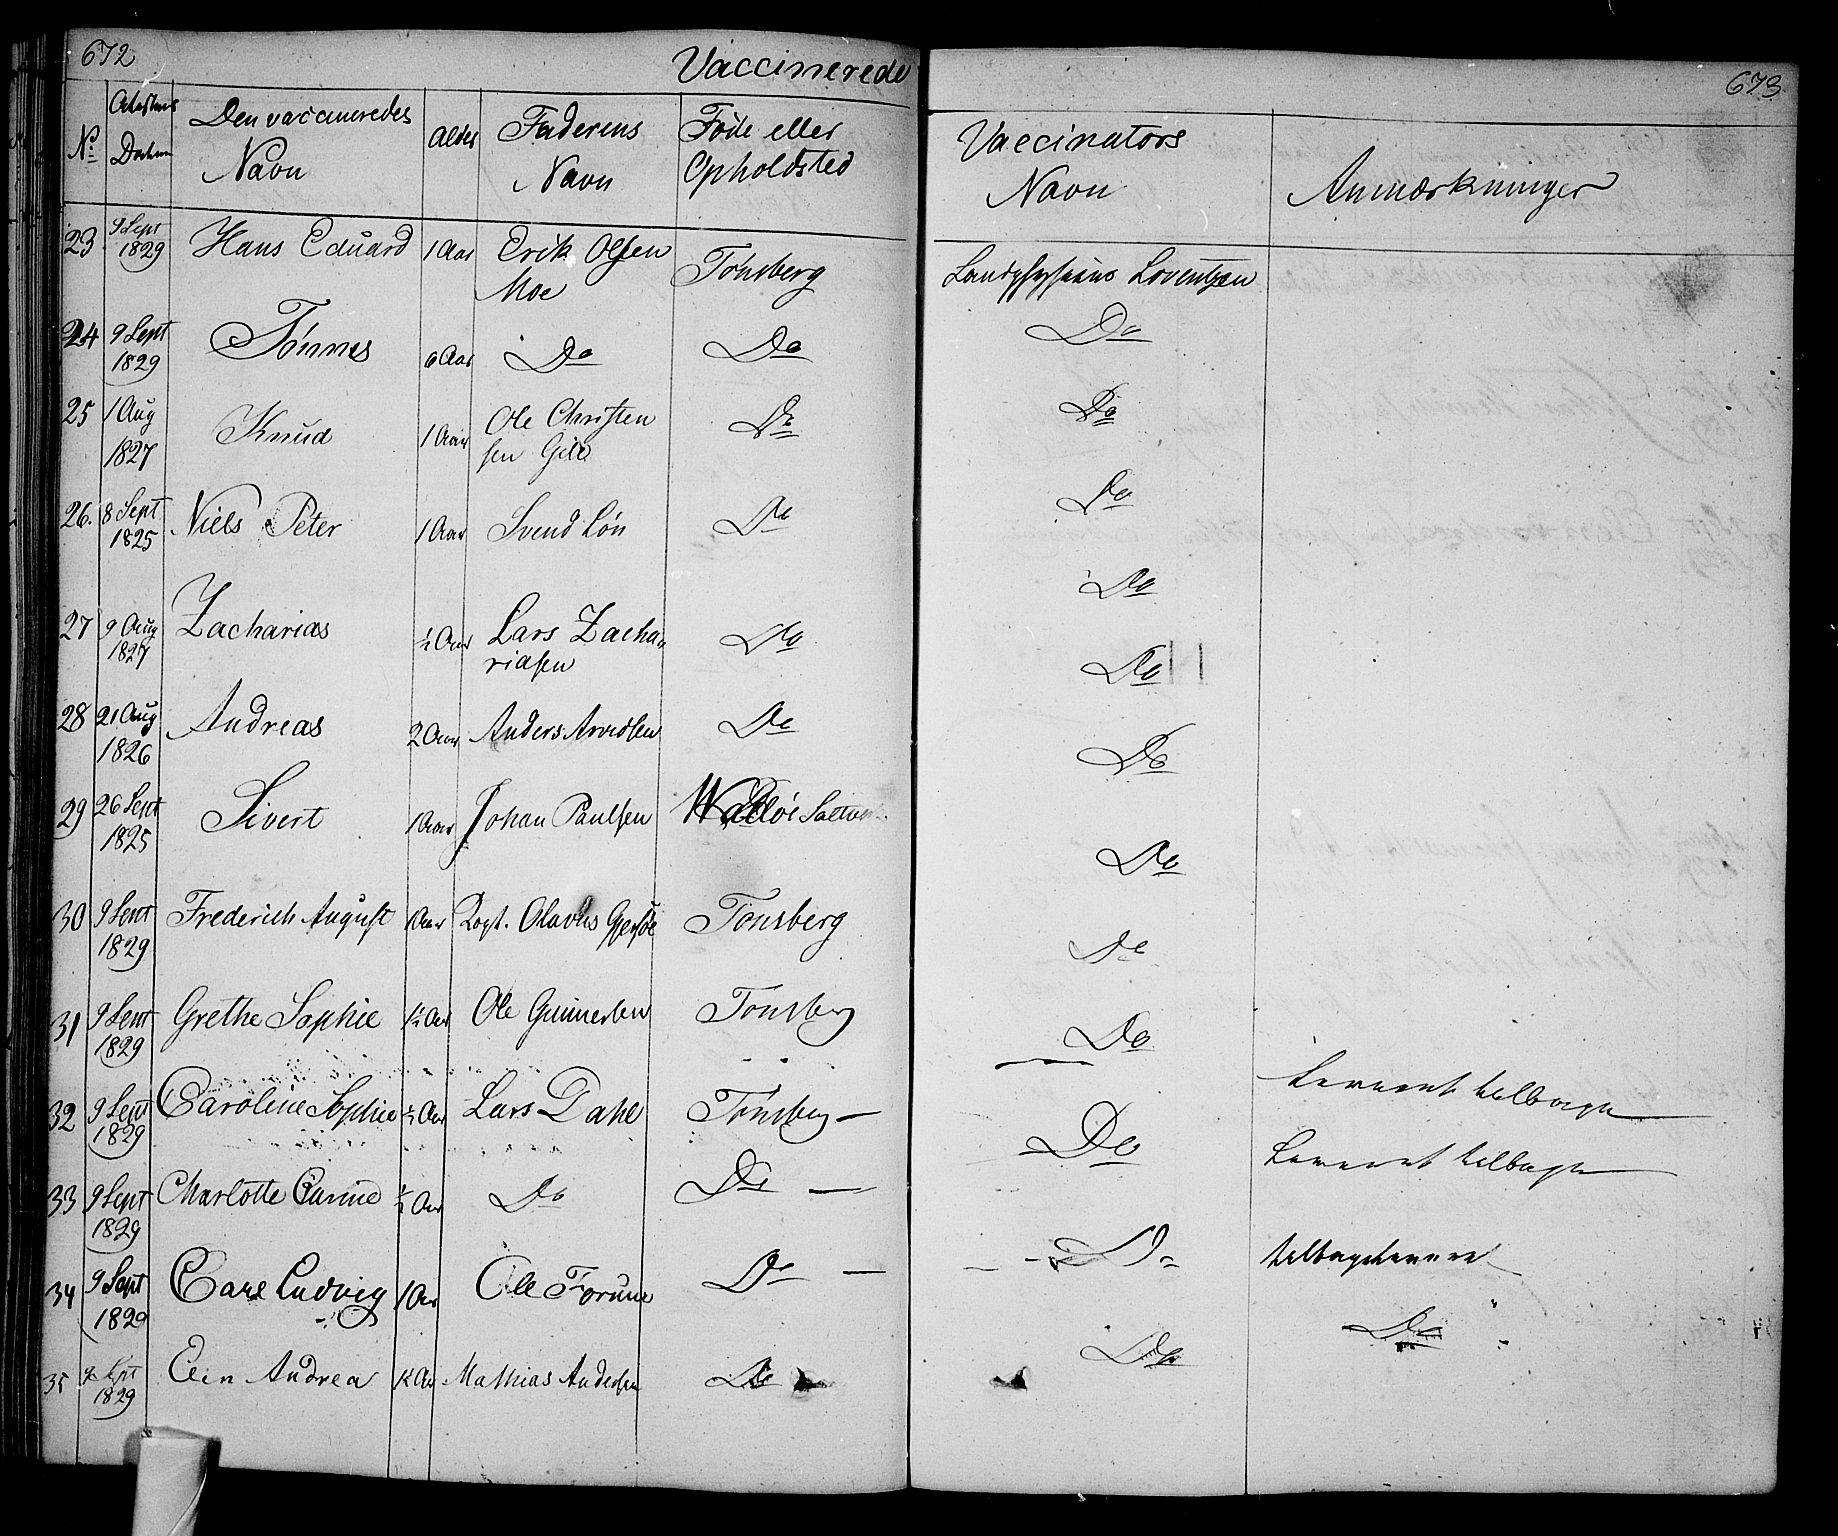 672
Vaccinerede
673
No
Attestens Datum
Den vaccineredes Navn
Alder
Faderens Navn
Føde eller Opholdsted
Vaccinators Navn
Anmærkninger
23 9 Sept 1829 Hans Eduard 1 Aar Erik Olsen Moe Tønsberg Landphysicus Lorentzen
24 9 Sept 1829 Tønnes 6 Aar Do Do Do
25 1 Aug 1827 Knud 1 Aar Ole Christensen Do Do
26. 8 Sept 1825 Niels Peter 1 Aar Svend Løn Do Do
27 9 Aug 1827 Zacharias ½ Aar Lars Zachariasen Do Do
28 21 Aug 1826 Andreas 2 Aar Anders Arvedsen Do Do
29 26 Sept 1825 Sivert 1 Aar Johan Paulsen Walløe Do
30 9 Sept 1829 Frederich August 1 Aar Olavus Tonsberg Do
31 9 Sept 1829 Grethe Sophie 1½ Aar Ole Gunnersen Tonsberg Do
32 9 Sept 1829 Caroline Sophie ½ Aar Lars Dahl Tønsberg — Do Leveret tilbage
33 9 Sept 1829 Charlotte Carine ½ Aar Do Do — Do Leveret tilbage
34 9 Sept 1829 Carl Ludvig 1 Aar Ole Forune Do — Do tilbageleveret
35 9 Sept 1829 Elen Andrea ½ Aar Mathias Andersen Do Do Do